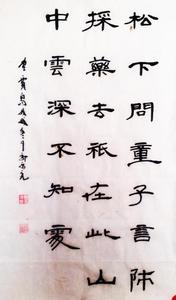 松下問童子言師
採藥去祇在此山
中雲深不知處
唐賈島